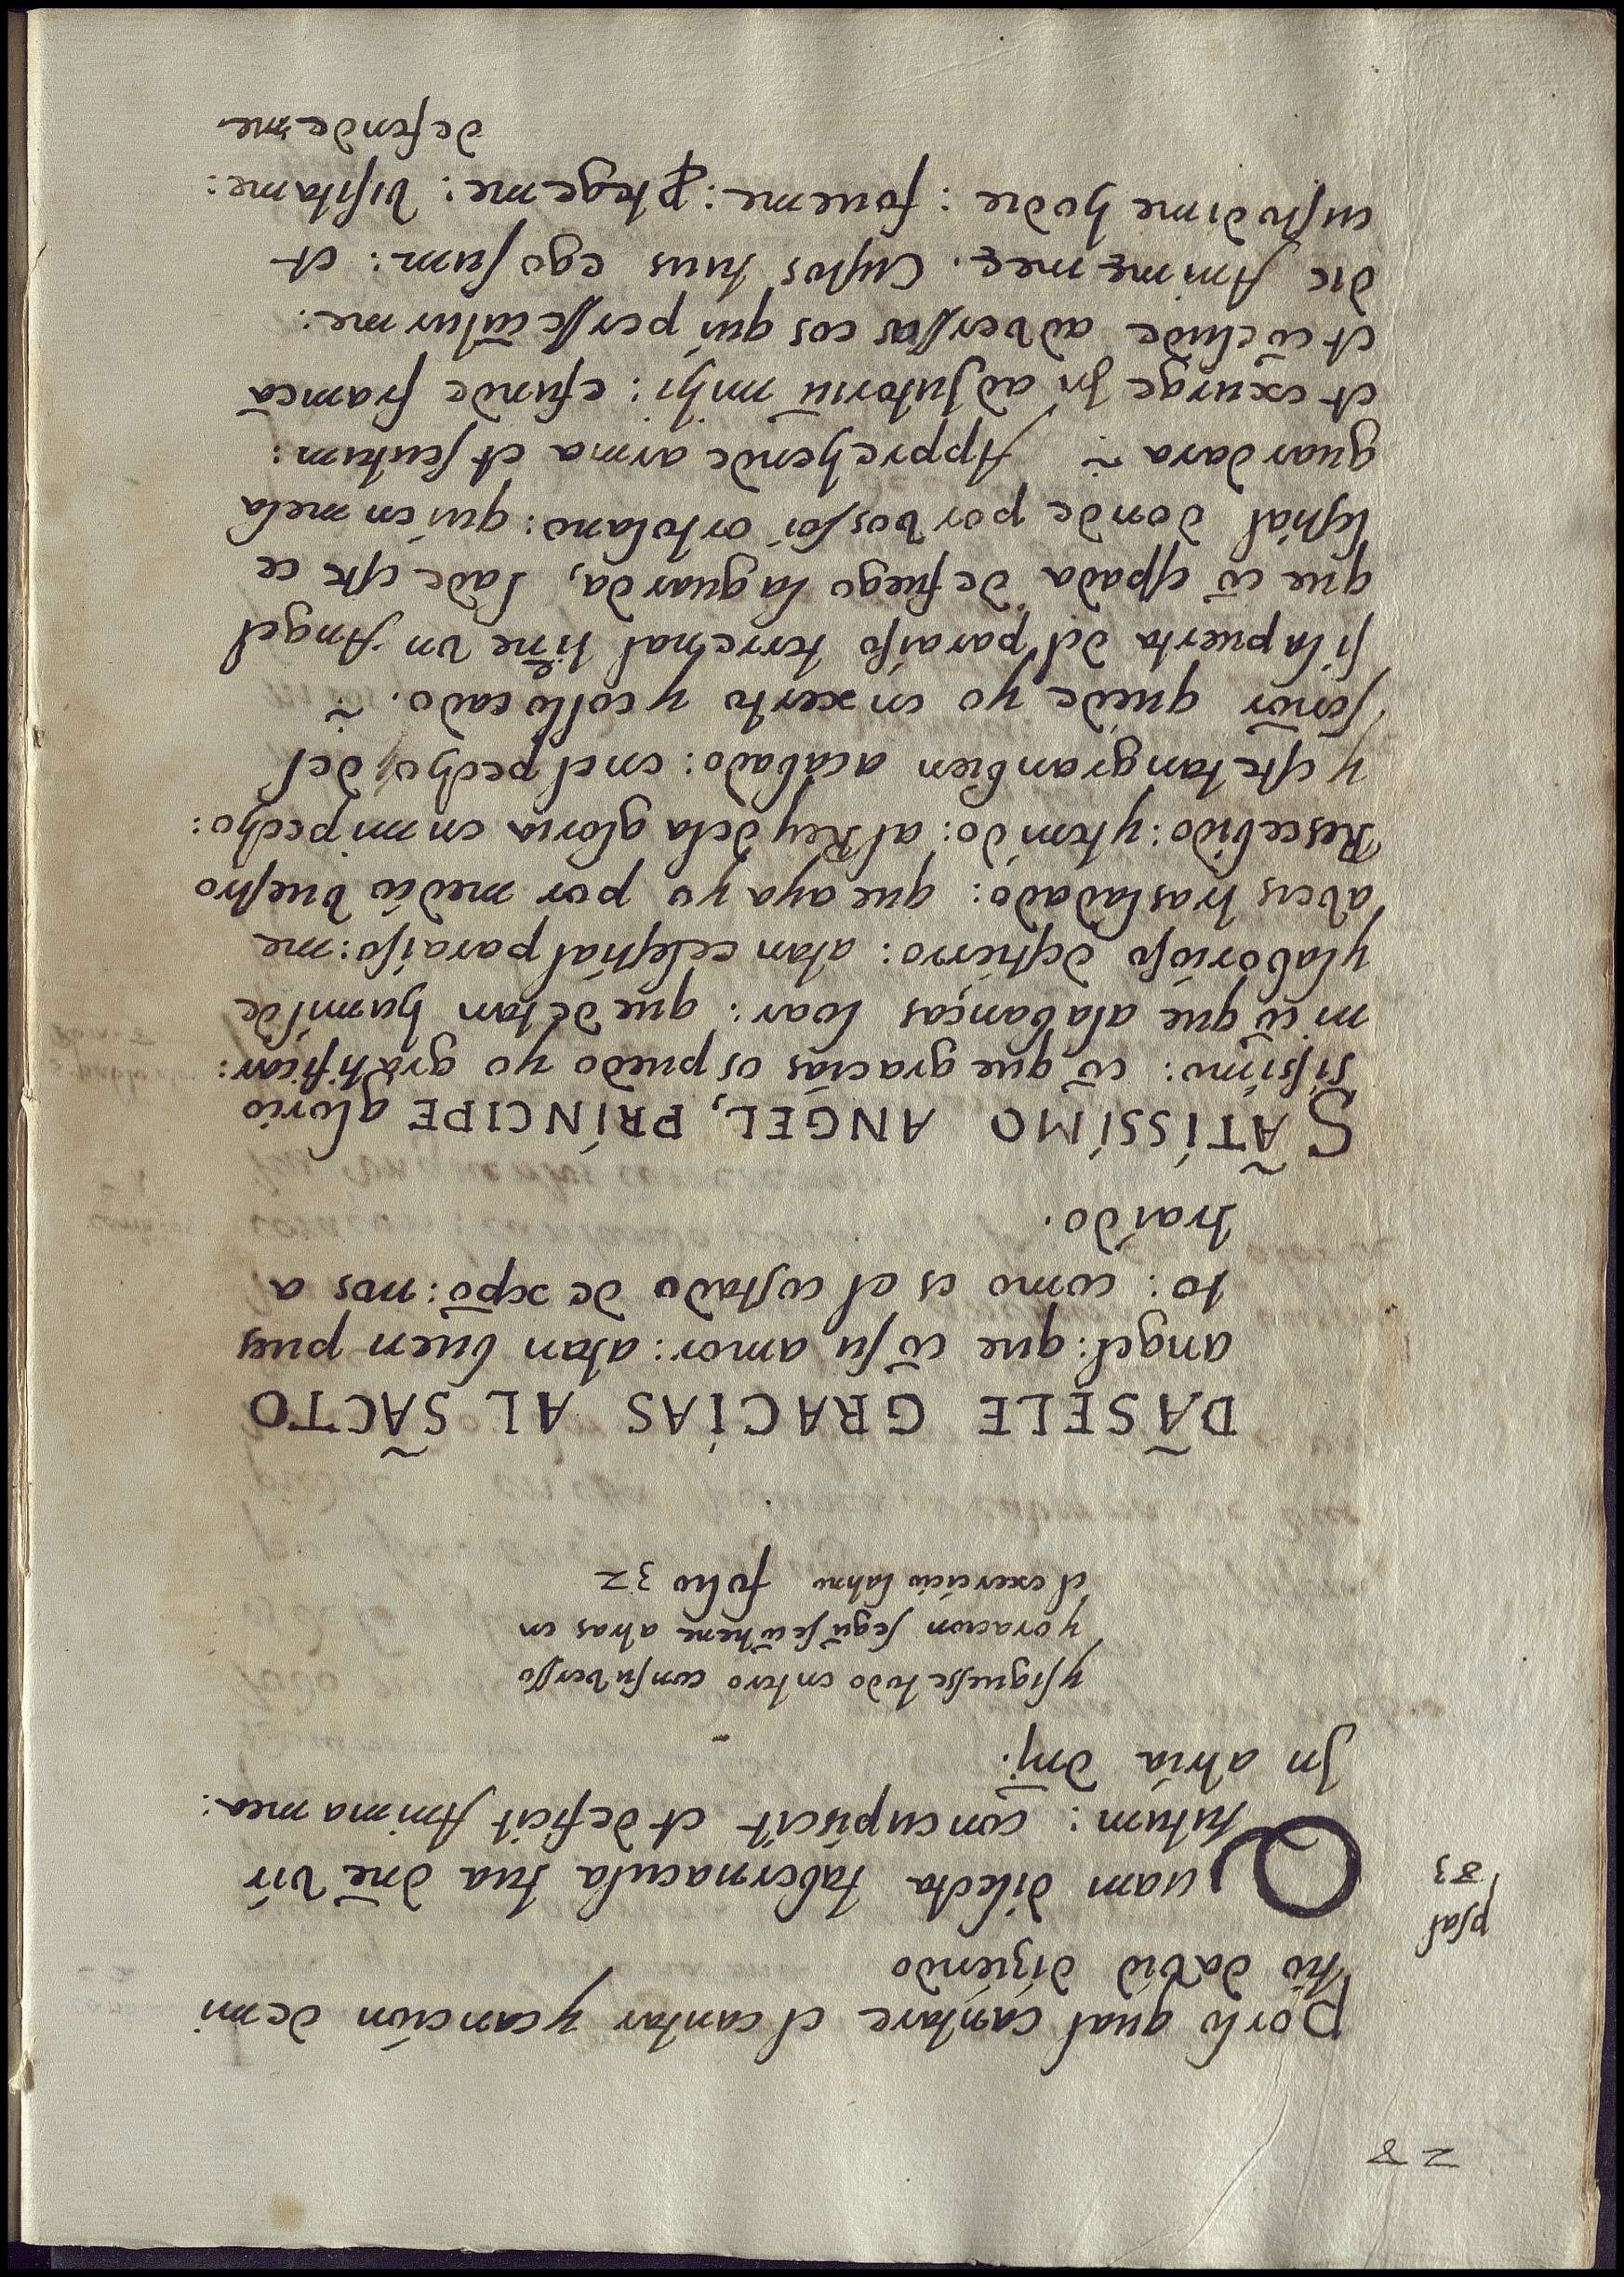 28
Por lo qual cantare el cantar y canción de mi
tío david diziendo
psal
83
Quam dilecta tabernacula tua dñe vir
tutum: concupiscit et deficit Anima mea:
Jn atria dnj.
y siguesse todo entero con su versso
y oracion segū se cōtiene atras en
el exercicio latino folio 32
DÃSELE GRACÍAS AL SÃCTO
angel: que cō su amor: a tan buen pues
to: como es el costado de xpō: nos a
traído.
SÃTÍSSÍMO ANGEL, PRÍNCIPE glorio
sissimo: cō que gracias os puedo yo gratificar:
ni cō que alabanças loar: que de tan humilde
y laborioso destierro: a tan celestial paraiso: me
aveis trasladado: que aya yo por medio vuestro
Rescebido: y tenido: al Rey dela gloria en mi pecho:
y este tan gran bien acabado: en el pecho del
señor quede yo enxerto y collocado. ~
si la puerta del paraiso terrenal tiēne vn Angel
que cō espada de fuego la guarda, la de este ce
lestial donde por vos soi ortolano: quien me la
guardara ~ Apprehende arma et scutum:
et exurge Jn adjutoriū mihi: efunde frameā
et cōclude adverssas eos qui perssecūtur me:
dic Animę meę. Custos tuus ego sum: et
custodi me hodie: foue me: ꝓtege me: visita me:
defende me